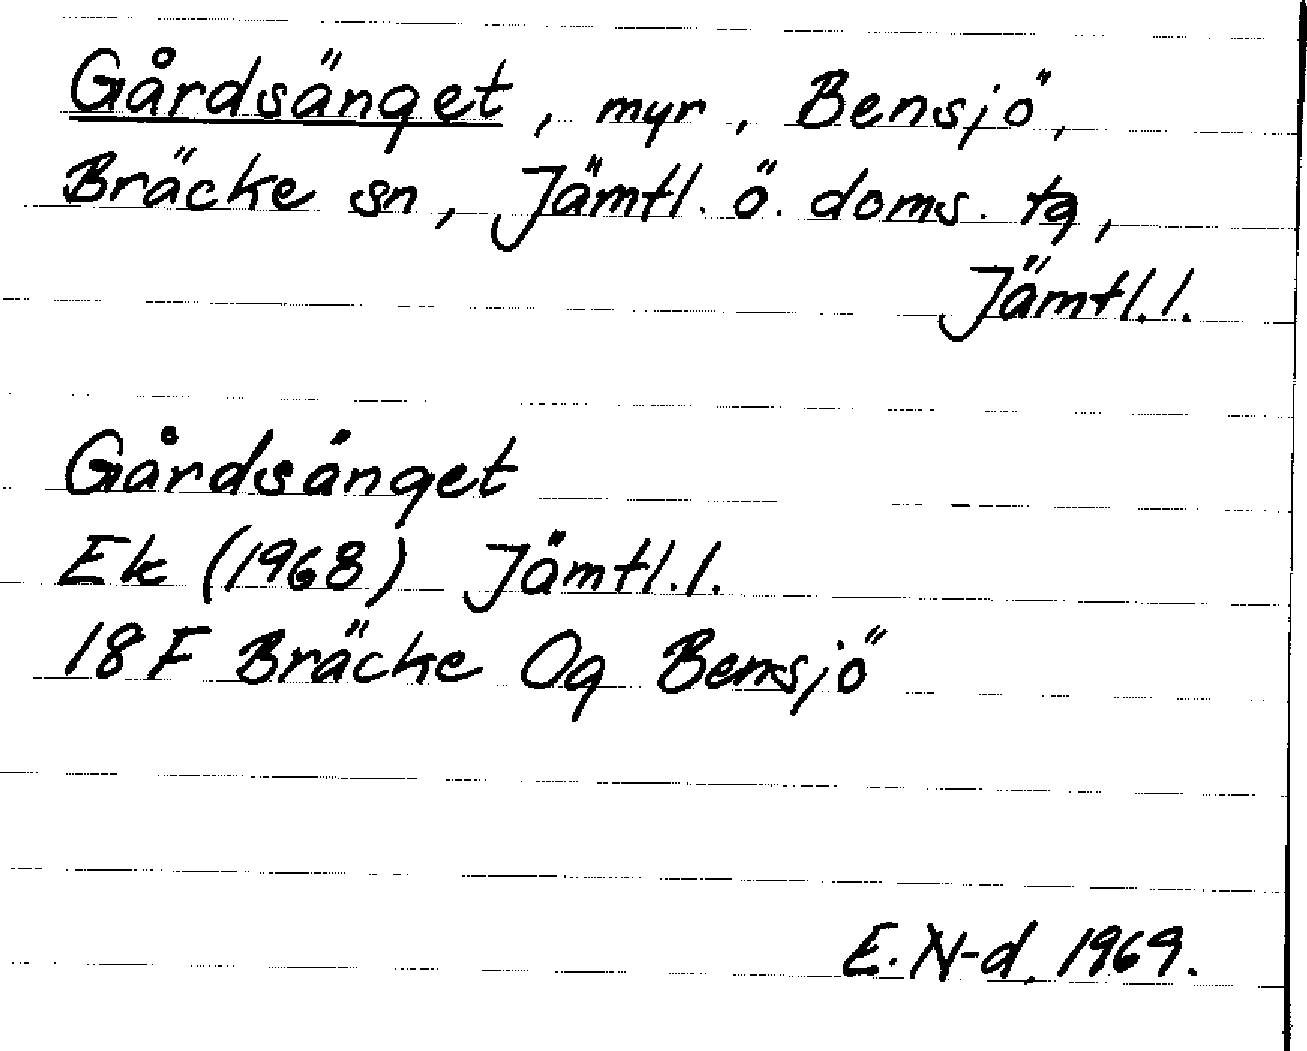 Gårdsänget, myr, Bensjö,
Bräcke sn, Jämtl. ö. doms. tg,
Jämtl.l.
Gårdsänget
Ek (1968) Jämtl.l.
18F Bräcke Og Bensjö
E. N-d. 1969.